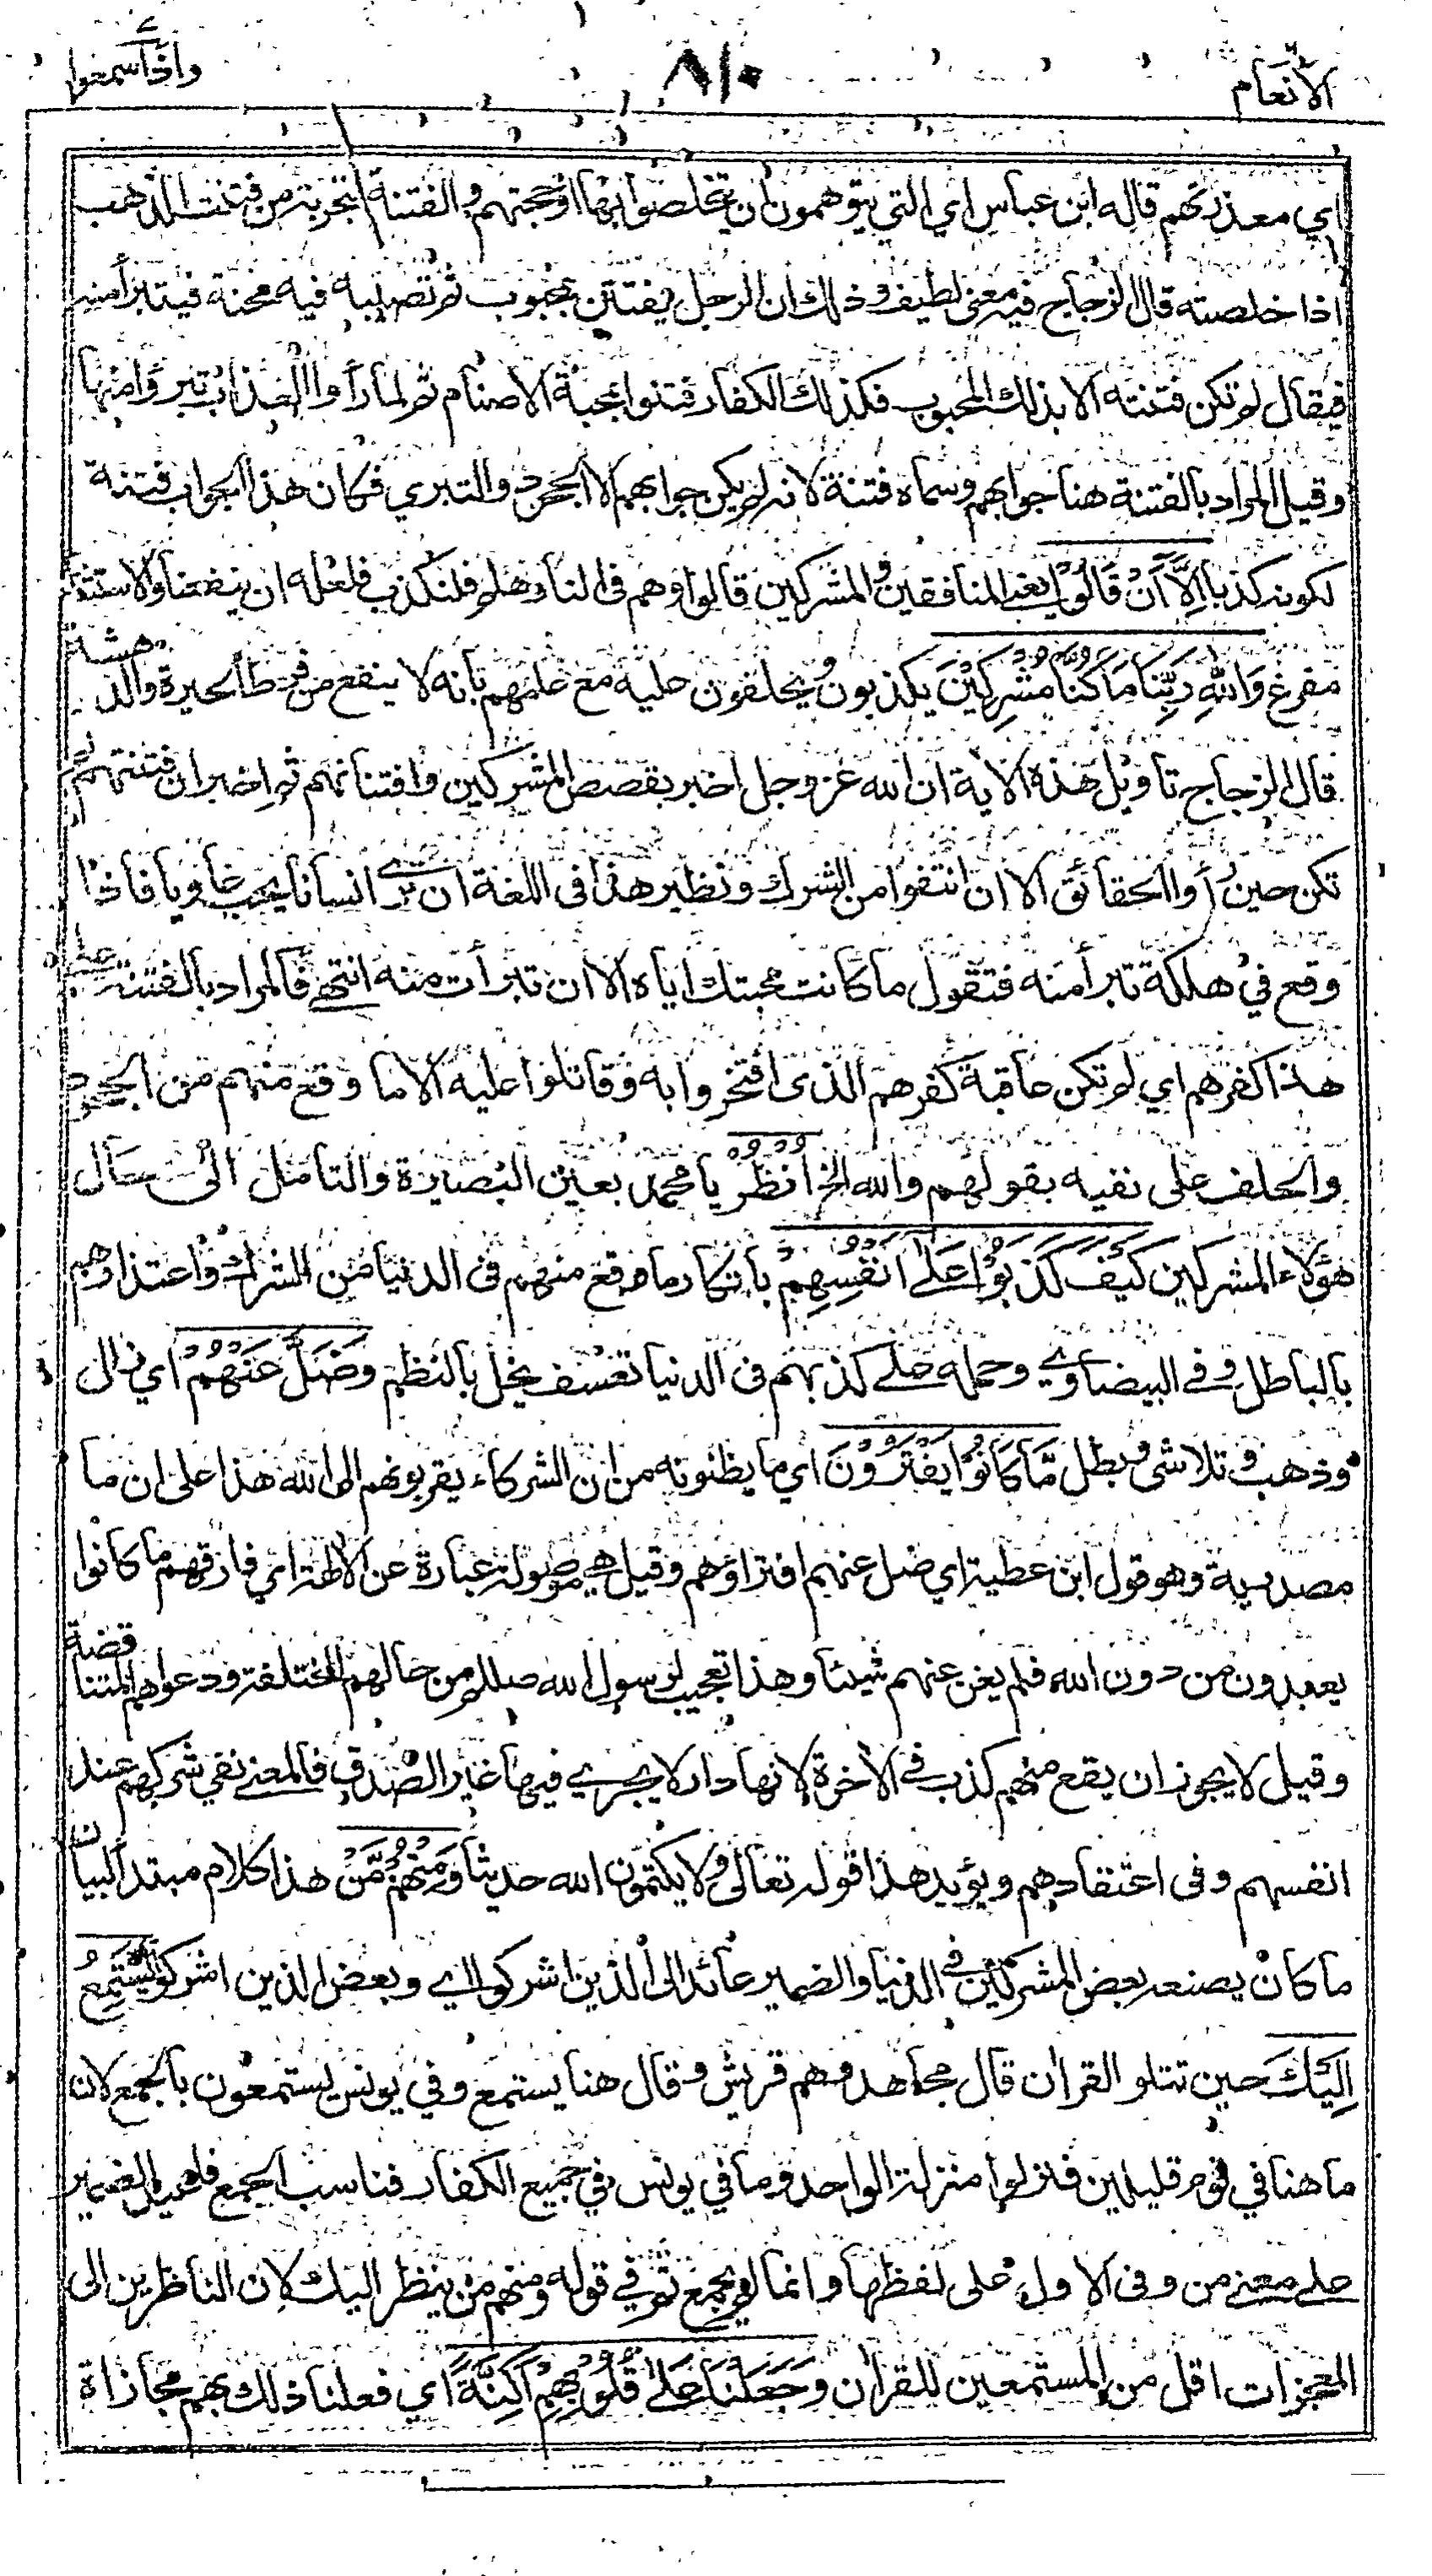 الأنعام ٨١٠ واذا سمعوا
اي معذرتهم قاله ابن عباس اي التي يتوهمون ان يتخلصوا بها او حجتهم والفتنة التجربة من فتنت الذهب
اذا خلصته قال الزجاج فيه معنى لطيف وذلك ان الرجل يفتتن بمحبوب ثم تصيبه فيه محنة فيتبرأ منه
فيقال لم تكن فتنته الا بذلك المحبوب فكذلك الكفار فتنوا بمحبة الاصنام ثم لما رأوا العذاب تبرؤا منها
وقيل المراد بالفتنة هنا جوابهم وسماه فتنة لانه لم يكن جوابهم الا الجحود والتبري فكان هذا الجواب فتنة
لكونه كذبا اِلَّا اَنْ قَالُوْا يعني المنافقين والمشركين قالوا وهم في النار هلم فلنكذب فلعله ان ينفعنا والاستثناء
مفرغ وَاللّٰهِ رَبِّنَا مَا كُنَّا مُشْرِكِيْنَ يكذبون ويحلفون عليه مع علمهم بأنه لا ينفع من فرط الحيرة والدهشة
قال الزجاج تاويل هذه الاية ان الله عز وجل اخبر بقصص المشركين وافتتانهم ثم اخبر ان فتنتهم لم
تكن حين رأوا الحقائق الا ان انتفوا من الشرك ونظير هذا في اللغة ان ترى انسانا يحب غاويا فاذا
وقع في هلكة تبرأ منه فتقول ما كانت محبتك اياه الا ان تبرأت منه انتهى فالمراد بالفتنة على
هذا كفرهم اي لم تكن عاقبة كفرهم الذى افتخروا به وقاتلوا عليه الا ما وقع منهم من الجحود
والحلف على نفيه بقولهم والله الخ اُنْظُرْ يا محمد بعين البصيرة والتأمل الى حال
هؤلاء المشركين كَيْفَ كَذَبُوْا عَلٰٓى اَنْفُسِهِمْ بانكار ما وقع منهم في الدنيا من الشرك واعتذارهم
بالباطل وفي البيضاوي وحمله على كذبهم في الدنيا تعسف يخل بالنظم وَضَلَّ عَنْهُمْ اي زال
وذهب وتلاشى وبطل مَّا كَانُوْا يَفْتَرُوْنَ اي ما يظنونه من ان الشركاء يقربونهم الى الله هذا على ان ما
مصدرية وهو قول ابن عطية اي ضل عنهم افتراؤهم وقيل هي موصولة عبارة عن الألهة اي فارقهم ما كانوا
يعبدون من دون الله فلم يغن عنهم شيئا وهذا تعجيب لرسول الله صللم من حالهم المختلفة ودعواهم المتناقضة
وقيل لا يجوز ان يقع منهم كذب في الأخرة لانها دار لا يجري فيها غير الصدق فالمعنى نفي شركهم عند
انفسهم وفي اعتقادهم ويؤيد هذا قوله تعالى ولا يكتمون الله حديثا وَمِنْهُمْ مَّنْ هذا كلام مبتدأ لبيان
ما كان يصنعه بعض المشركين في الدنيا والضمير عائد الى الذين اشركوا اي وبعض الذين اشركوا يَّسْتَمِعُ
اِلَيْكَ حين تتلو القران قال مجاهد وهم قريش وقال هنا يستمع وفي يونس يستمعون بالجمع لان
ما هنا في قوم قليلين فنزلوا منزلة الواحد وما في يونس في جميع الكفار فناسب الجمع فاعيد الضمير
على معنى من وفي الاول على لفظها وانما لم يجمع ثم في قوله ومنهم من ينظر اليك لان الناظرين الى
المعجزات اقل من المستمعين للقران وَجَعَلْنَا عَلٰى قُلُوْبِهِمْ اَكِنَّةً اي فعلنا ذلك بهم مجازاة